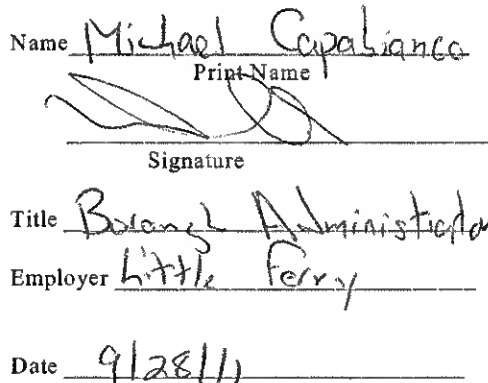 Name Michael Capabianco
Print Name
Signature
Title Borough Administrator
Employer Little Ferry
Date 9/28/11